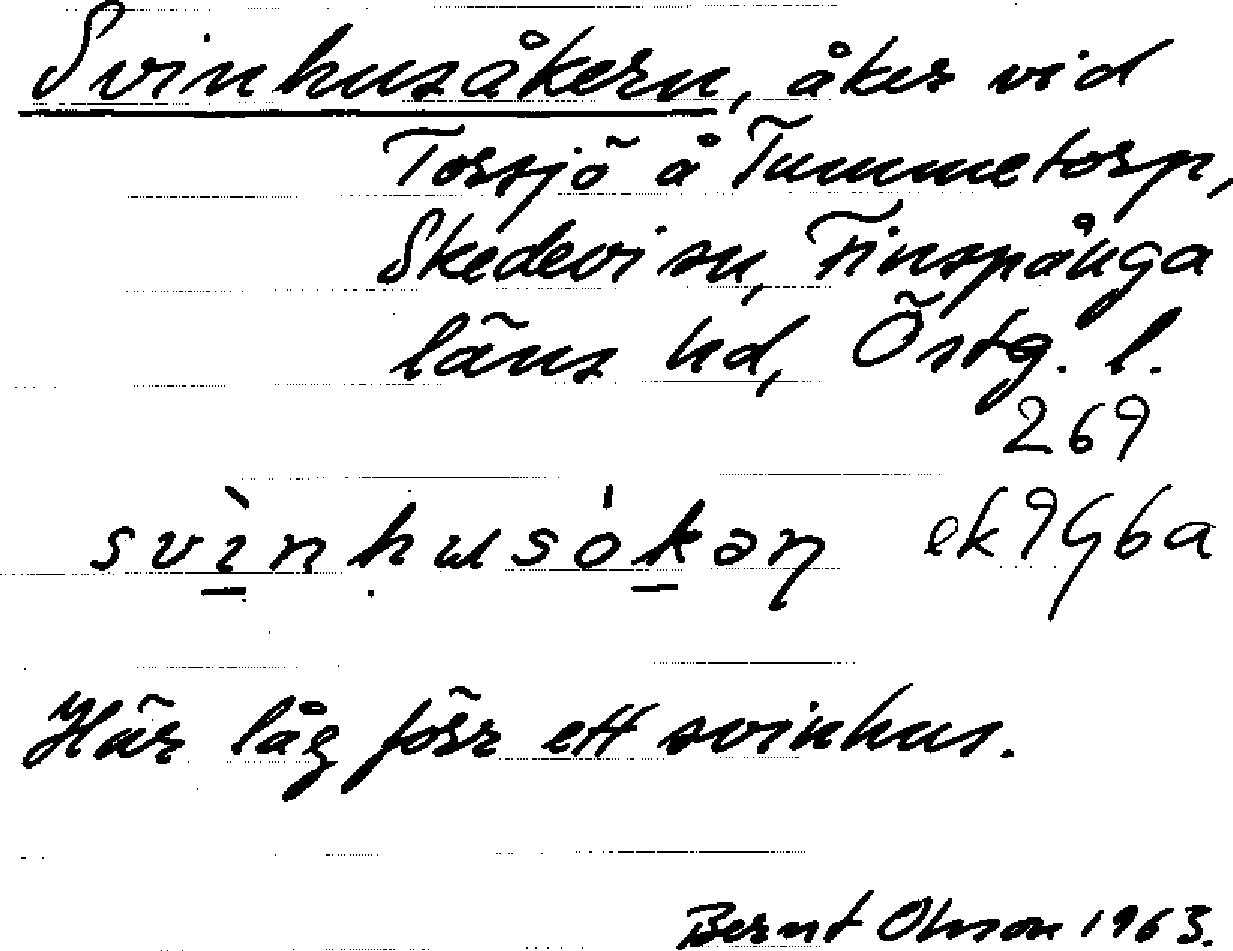 Svinhusåkern, åker vid
Torsjö å Tummetorp,
Skedevi sn, Finspånga
läns hd, Östg. l.
269
ek 9G6a
Här låg förr ett svinhus.
Bernt Olsson 1963.